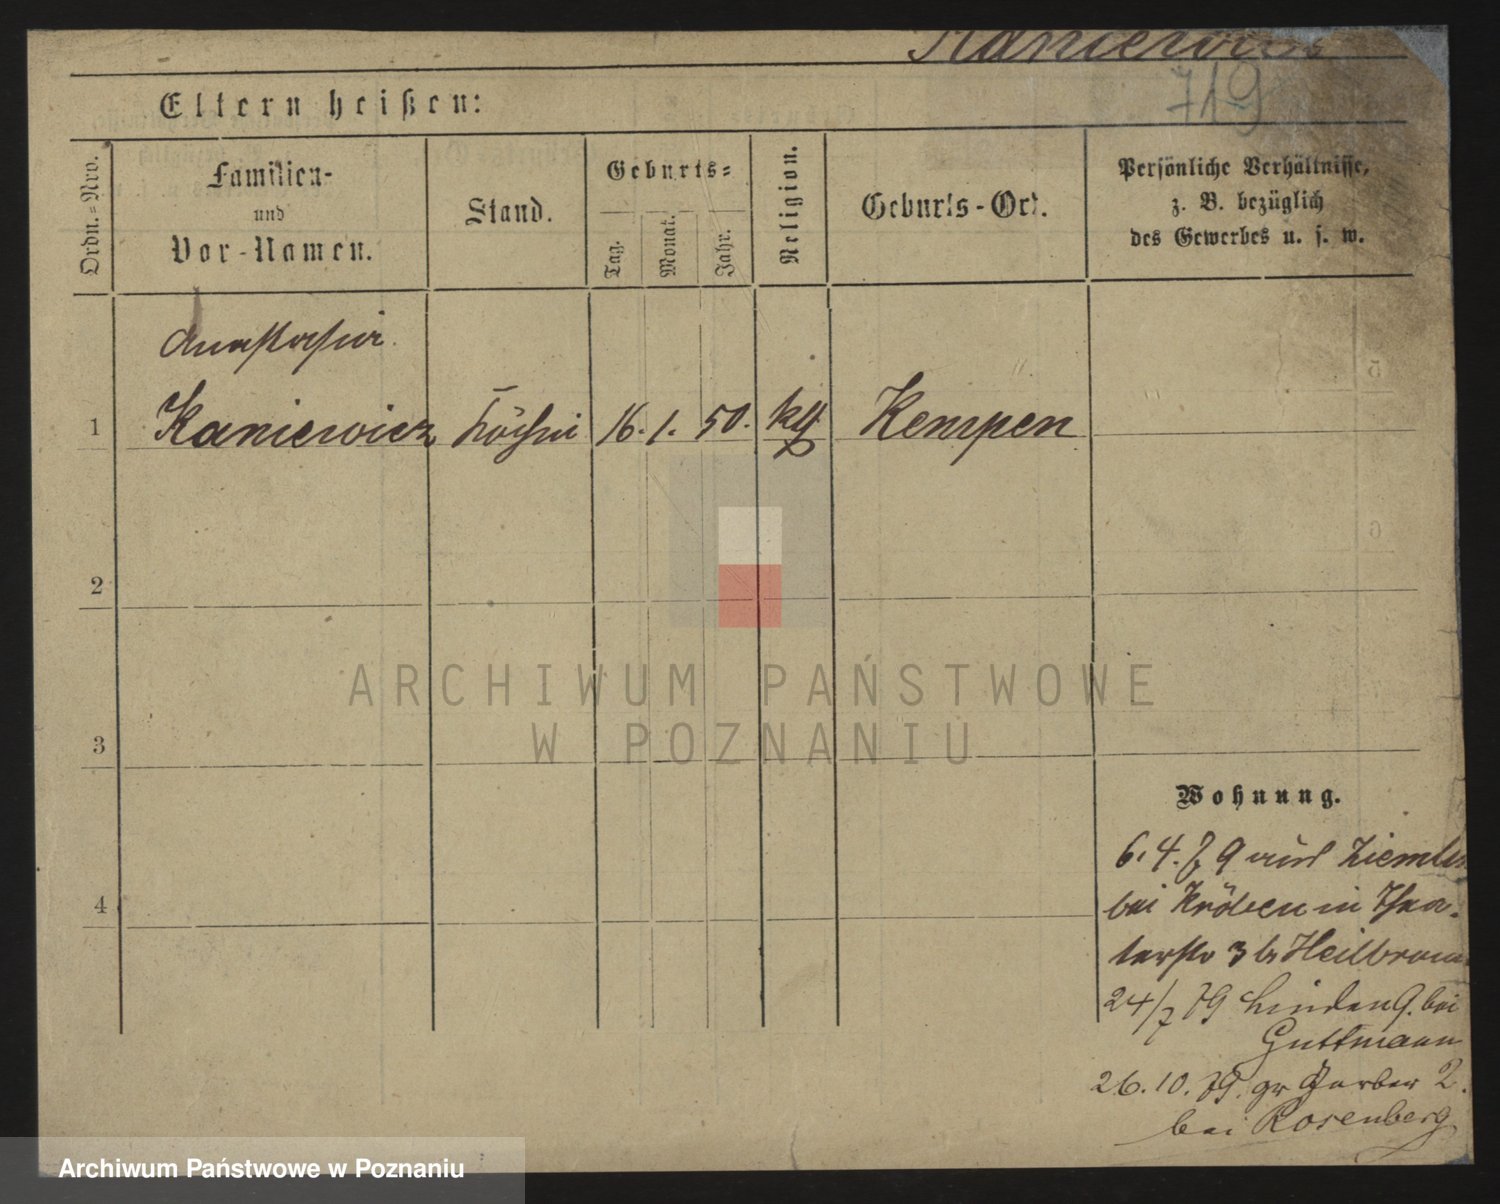 Kaniewicz
719
Eltern heißen:
Ordn.=Nro.
Familien-
und
Vor-Namen.
Stand.
Geburts=
Tag.
Monat.
Jahr.
Religion.
Geburts-Ort.
Persönliche Verhältnisse,
z. B. bezüglich
des Gewerbes u. s. w.
Anastasia
1 Kaniewicz Köchin 16. 1. 50. kth Kempen
2
3
4
ARCHIWUM PAŃSTWOWE
W POZNANIU
Wohnung.
6. 4. 79 aus
bei Kröben in Thea-
terstr 3 b Heilbronn
24/7 79 Linden 9. bei
Guttmann
26. 10. 79. gr Gerber 2.
bei Rosenberg
Archiwum Państwowe w Poznaniu